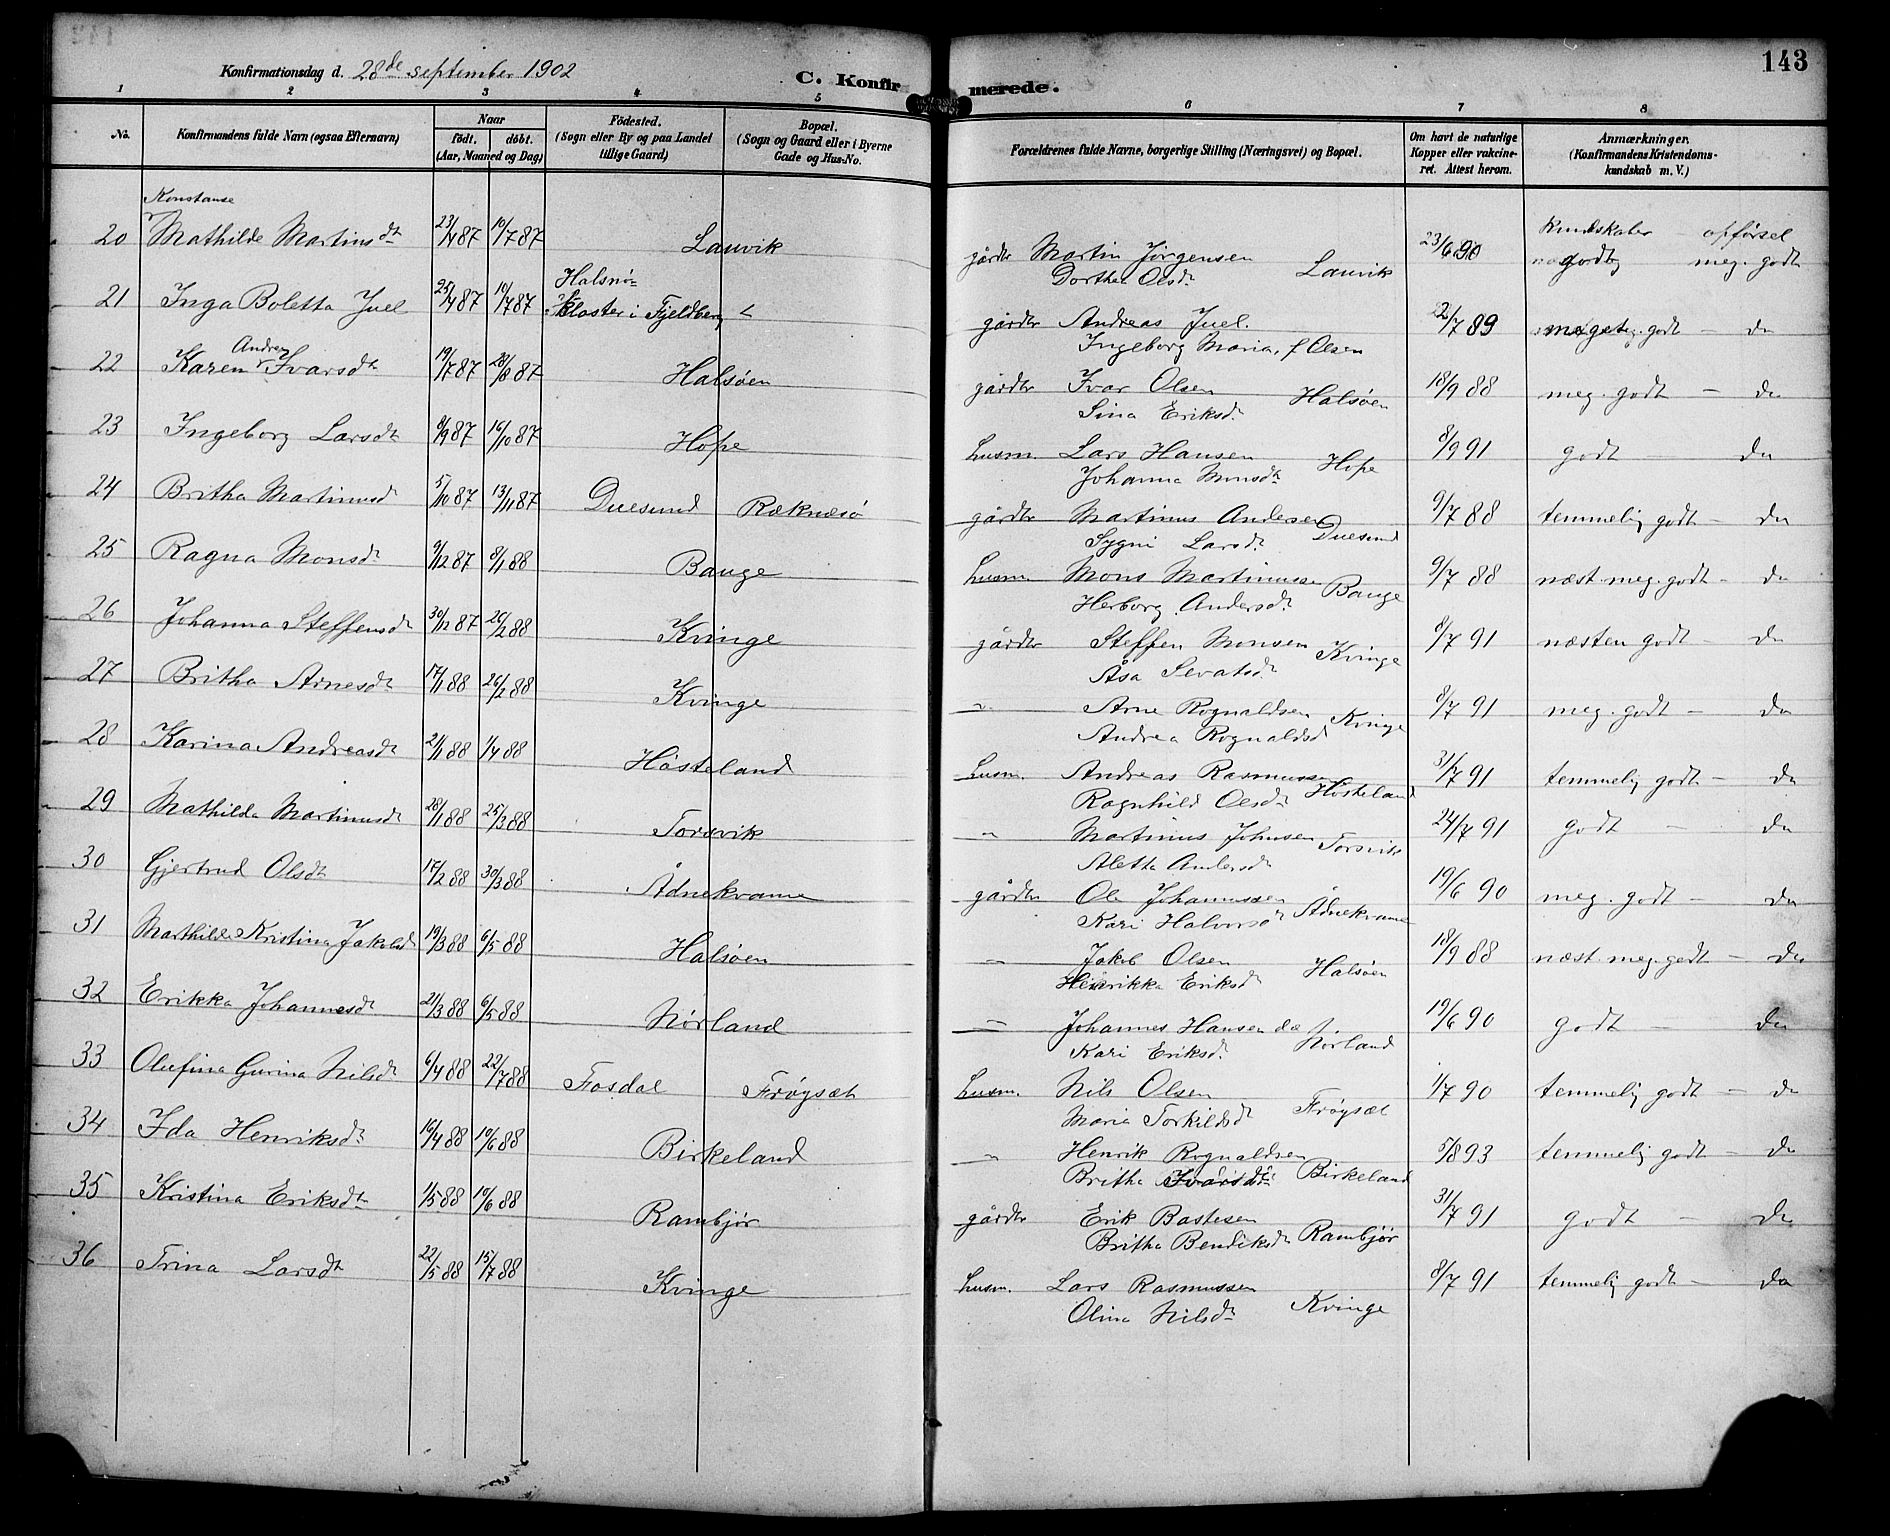 143
Konfirmationsdag d. 28de september 1902
C. Konfirmerede.
1 2 3 4 5 6 7 8
No. Konfirmandens fulde Navn (ogsaa Efternavn) Naar født, døbt. (Aar, Maaned og Dag) Födested. (Sogn eller By og paa Landet tillige Gaard) Bopæl. (Sogn og Gaard eller i Byerne Gade og Hus-No. Forældrenes fulde Navne, borgerlige Stilling (Næringsvei) og Bopæl. Om havt de naturlige Kopper eller vakcineret. Attest herom. Anmærkninger. (Konfirmandens Kristendomskundskab m. V.)
Konstanse
Kundskaber opførsel
20 Mathilde Martinsdt 23/4 87 10/7 87 Lauvik gårdbr Martin Jørgensen Lauvik 23/6 90 godt meg. godt
Dorthea Olsdt
21 Inga Boletta Juel 25/4 87 10/7 87 Halsnøkloster i Fjeldberg gårdbr Andreas Juel. 22/7 89 meget godt - do
Ingeborg Maria f Olsen
22 Karen Andrea Ivarsdt 19/7 87 28/8 87 Halsøen gårdbr Ivar Olsen Halsøen 18/9 88 meg. godt - do
Sina Eriksdt
23 Ingeborg Larsdt 9/9 87 16/10 87 Hope husm. Lars Hansen Hope 8/9 91 godt - do
Johanna Monsdt
24 Britha Martinusdt 5/10 87 13/11 87 Duesund Ræknesø gårdbr Martinus Andersen Duesund 9/7 88 temmelig godt - do
Sygni Larsdt
25 Ragna Monsdt 9/12 87 8/1 88 Bauge husm. Mons Martinussen Bauge 9/7 88 næst. meg. godt - do
Herborg Andersdt
26 Johanna Steffensdt 30/12 87 26/2 88 Kvinge gårdbr Steffen Monsen Kvinge 8/7 91 næsten godt - do
Åsa Sevatsdt
27 Britha Arnesdt 17/1 88 26/2 88 Kvinge " Arne Rognaldsen Kvinge 8/7 91 meg. godt - do
Andrea Rognaldsd
28 Karina Andreasdt 21/1 88 1/4 88 Hósteland husm. Andreas Rasmussen Hósteland 31/7 91 temmelig godt - do
Ragnhild Olsdt
29 Mathilda Martinusdt 28/1 88 25/3 88 Torsvik " Martinus Johnsen Torsvik 24/7 91 godt - do
Aletta Andersdt
30 Gjertrud Olsdt 17/2 88 30/3 88 Ådnekvame gårdbr Ole Johannessen Ådnekvame 19/6 90 meg. godt - do
Kari Halvorsdt
31 Marthilde Kristina Jakobsd 19/3 88 6/5 88 Halsøen " Jakob Olsen Halsøen 18/9 88 næst. meg. godt - do
Henrikka Eriksdt
32 Erikka Johannesdt 21/3 88 6/5 88 Nørland " Johannes Hansen Nørland 19/6 90 godt - do
Kari Eriksdt
33 Olufina Gurina Nilsdt 6/4 88 22/7 88 Fosdal Frøyset husm. Nils Olsen Frøyset 1/7 90 temmelig godt - do
Maria Torkildsdt
34 Ida Henriksdt 16/4 88 10/6 88 Birkeland " Henrik Rognaldsen Birkeland 5/8 93 temmelig godt - do
Britha Ivarsdt
35 Kristina Eriksdt 1/5 88 10/6 88 Rambjør gårdbr Erik Bastesen Rambjør 31/7 91 godt - do
Britha Bendiksdt
36 Trina Larsdt 22/5 88 15/7 88 Kvinge husm. Lars Rasmussen Kvinge 8/7 91 temmelig godt - do
Olina Nilsdt